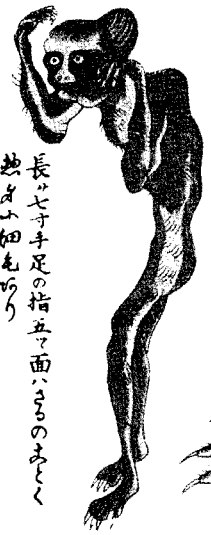 長サ七寸手足の指五ツ面ハさるのことく
惣身ニ細毛あり